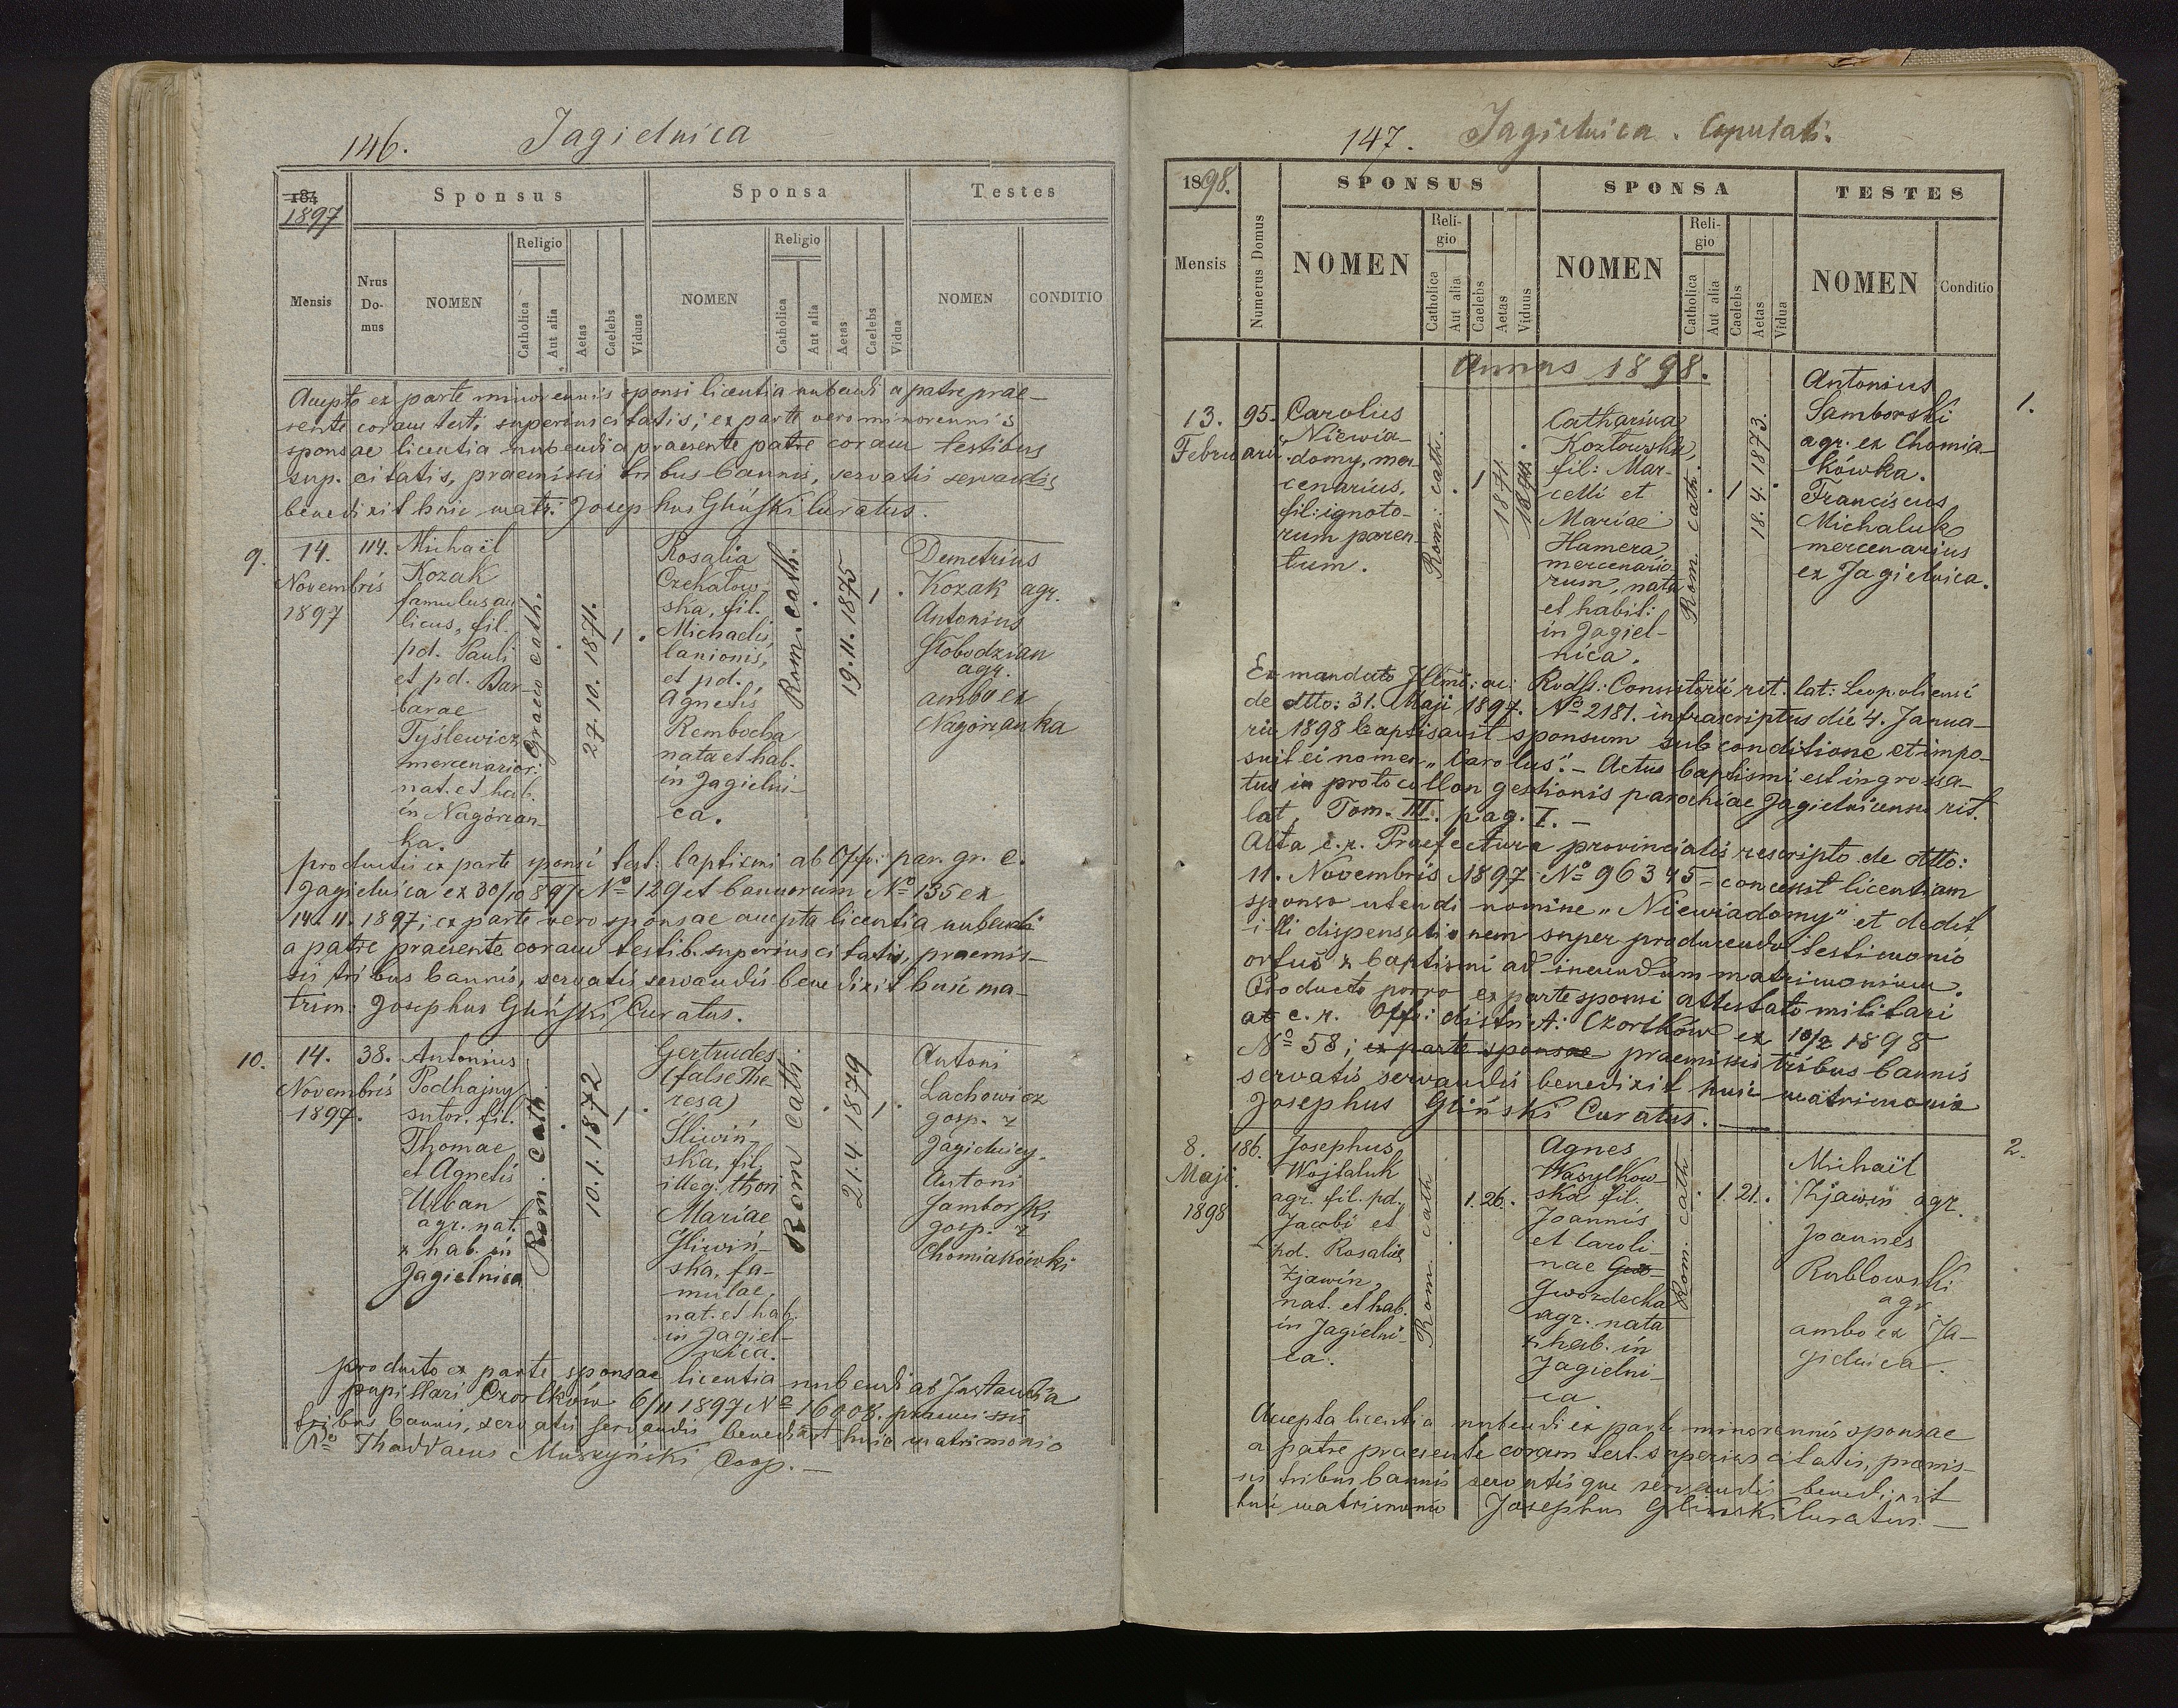 146. Jagielnica
184
1897
Sponsus
Sponsa
Testes
Mensis
Nrus Domus
NOMEN
Religio
Catholica
Aut alia
Aetas
Caelebs
Viduus
NOMEN
Religio
Catholica
Aut alia
Aetas
Caelebs
Vidua
NOMEN
CONDITIO
Accepto ex parte minorennis sponsi licentia nubendi a patre prae-
sente coram test. superius citatis; ex parte vero minorennis
sponsae licentia nubendi a praesente patre coram testibus
sup. citatis, praemissis tribus bannis, servatis servandis
benedixit huic matr. Josephus Gliński Curatus.
9.
14.
Novembris
1897
114.
Michaël
Kozak
famulus au
licus, fil.
pd. Pauli
et pd. Bar-
barae
Tyślewicz
mercenarior:
nat. et hab.
in Nagórzan-
ka.
Graeco cath.
27. 10. 1871.
1
Rosalia
Czekałow-
ska, fil.
Michaelis
lanionis,
et pd.
Agnetis
Rembocha
nata et hab.
in Jagielni-
ca.
Rom. cath.
19. 11. 1875
1
Demetrius
Kozak agr.
Antonius
Słobodzian
agr.
ambo ex
Nagórzanka
productis ex parte sponsi test: baptismi ab Offo: par. gr. c.
Jagielnica ex 30/10 897 No 129 et bannorum No 135 ex
14. 11. 1897; ex parte vero sponsae accepta licentia nubendi
a patre praesente coram testib. superius citatis, praemis-
sis tribus bannis, servatis servandis benedixit huic ma-
trim: Josephus Gliński Curatus.
10.
14.
Novembris
1897.
38.
Antonius
Podhajny
sutor, fil.
Thomae
et Agnetis
Urban
agr. nat.
& hab. in
Jagielnica
Rom. cath.
10. 1. 1872
1
Gertrudes
(false The
resa)
Śliwiń-
ska, fil.
illeg. thori
Mariae
Śliwiń-
ska, fa-
mulae,
nat. et hab.
in Jagiel-
nica.
Rom cath:
21. 4. 1879
1
Antoni
Lachowicz
gosp. z
Jagielnicy.
Antoni
Samborski
gosp. z
Chomiakówki
producto ex parte sponsae licentia nubendi ab Instantia
pupillari Czortków 6/11 1897 No 16008. praemissis
tribus bannis, servatis servandis benedixit huic matrimonio
Thaddaeus Muszyński Coop.—
147. Jagielnica. Copulati.
1898.
SPONSUS
SPONSA
TESTES
Mensis
Numerus Domus
NOMEN
Reli-
gio
Catholica
Aut alia
Caelebs
Aetas
Viduus
NOMEN
Reli-
gio
Catholica
Aut alia
Caelebs
Aetas
Vidua
NOMEN
Conditio
Annus 1898.
13.
Februarii
95.
Carolus
Niewia-
domy, mer-
cenarius,
fil: ignoto-
rum paren-
tum.
Rom: cath.
1
Catharina
Kozłowska,
fil: Mar-
celli et
Mariae
Hamera,
mercenario-
rum, nata
et habit:
in Jagiel-
nica.
Rom. cath.
1
18. 4. 1873.
Antonius
Samborski
agr. ex Chomia-
kówka.
Franciscus
Michaluk
mercenarius
ex Jagielnica.
1.
Ex mandato Illmi: ac: Rvdss: Consistorii rit. lat: Leopoliensi
de dtto: 31. Maji 1897. No 2181. infrascriptus die 4. Janua-
rii 1898 baptisavit sponsum sub conditione et impo-
suit ei nomen „Carolus". - Actus baptismi est ingrossa-
tus in protocollon gestionis parochiae Jagielnicensis rit.
lat. Tom. III. pag. I. —
Alta c. r. Praefectura provincialis rescripto de dtto:
11. Novembris 1897 No 96345 - concessit licentiam
sponso utendi nomine „Niewiadomy" et dedit
illi dispensationem super producendo testimonio
ortus & baptismi ad ineundum matrimonium.
Producto porro ex parte sponsi attestato militari
ab c. r. Offo: district: Czortków ex 10/2 1898
No 58; ex parte sponsae praemissis tribus bannis
servatis servandis benedixit huic matrimonio
Josephus Gliński Curatus. —
8.
Maji
1898
186.
Josephus
Wojtaluk
agr. fil. pd.
Jacobi et
pd. Rosaliae
Zjawin,
nat. et hab.
in Jagielni-
ca.
Rom. cath
1. 26.
Agnes
Wasylkow-
ska fil.
Joannis
et Caroli-
nae Gwo-
Gwozdecha
agr. nata
& hab. in
Jagielni-
ca
Rom. cath
1. 21.
Michaël
Zjawin agr.
Joannes
Rublowski
agr
ambo ex Ja-
gielnica.
2.
Accepta licentia nubendi ex parte minorennis sponsae
a patre praesente coram test. superius citatis, praemis-
sis tribus bannis servatisque servandis benedixit
huic matrimonio Josephus Gliński Curatus.—